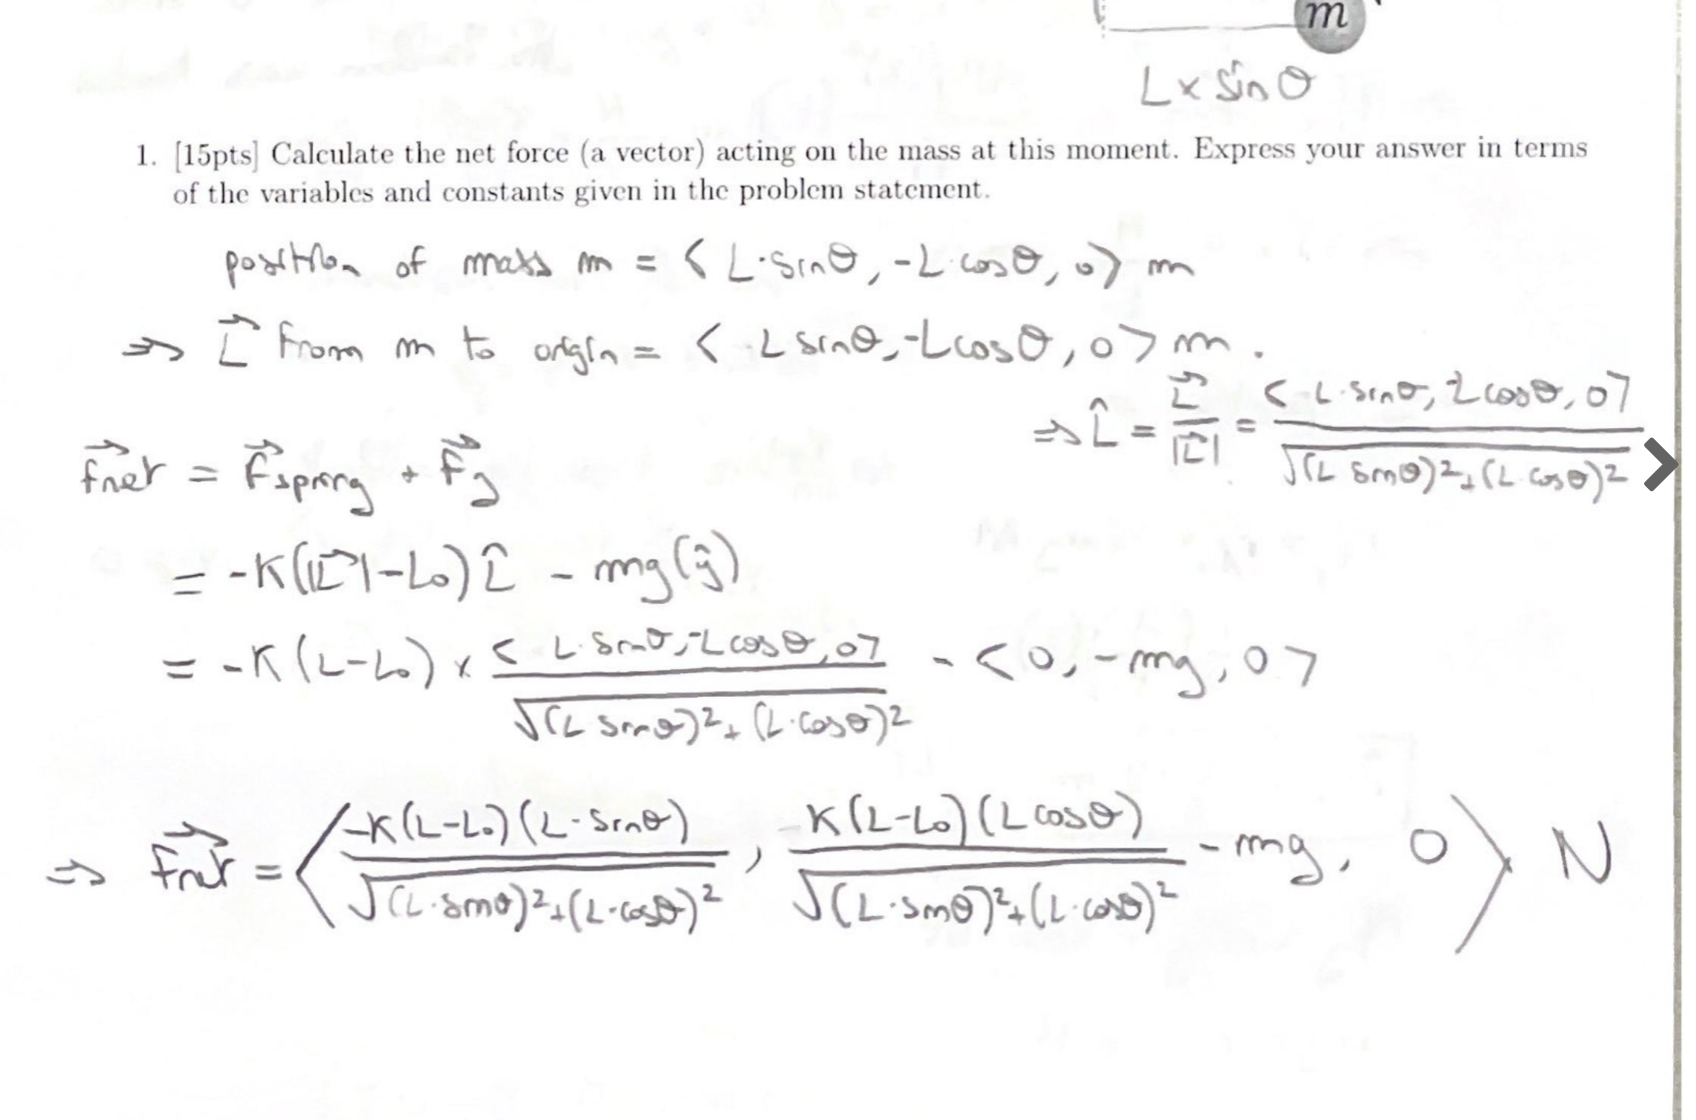 m
L x sin θ
1. [15pts] Calculate the net force (a vector) acting on the mass at this moment. Express your answer in terms
of the variables and constants given in the problem statement.
position of mass m = < L·sinθ, -L·cosθ, 0> m
⇒ L⃗ from m to origin = < L sinθ, -L cosθ, 0 > m.
⇒ L̂ = L⃗ / |L⃗| = < -L·sinθ, L cosθ, 0> / √((L sinθ)² + (L cosθ)²)
F⃗net = F⃗spring + F⃗g
= -K(|L⃗| - L₀) L̂ - mg(ŷ)
= -K(L-L₀) x < L·sinθ, -L cosθ, 0> / √((L sinθ)² + (L·cosθ)²) - <0, -mg, 0>
⇒ F⃗net = < -K(L-L₀)(L·sinθ) / √((L·sinθ)² + (L·cosθ)²), -K(L-L₀)(L cosθ) / √((L·sinθ)² + (L·cosθ)²) - mg, 0 > N